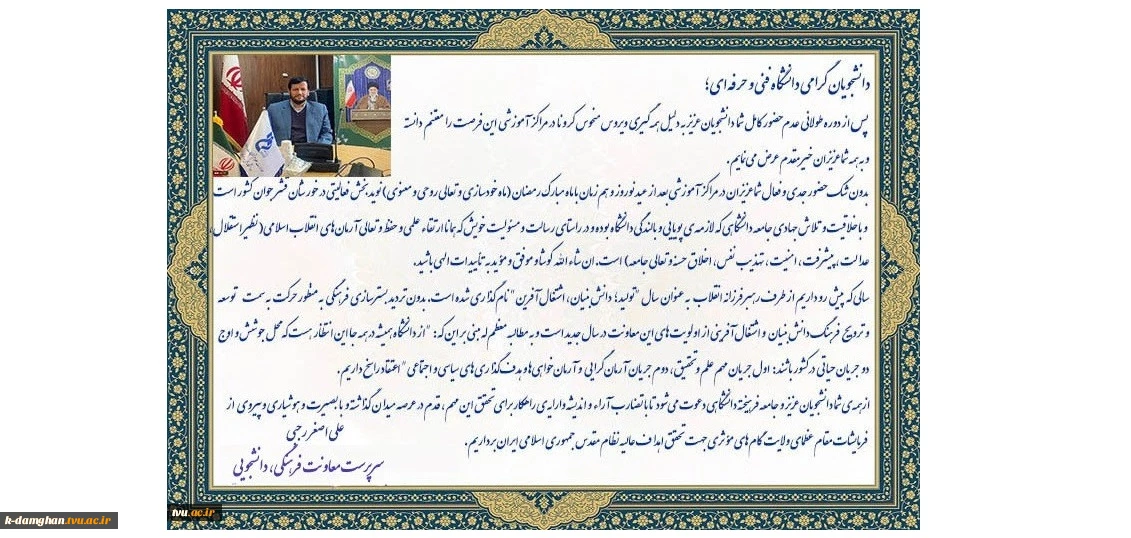 دانشجویان گرامی دانشگاه فنی و حرفه ای؛
پس از دوره طولانی عدم حضور کامل شما دانشجویان عزیز به دلیل همه گیری ویروس منحوس کرونا در مراکز آموزشی این فرصت را مغتنم دانسته
و به همه شما عزیزان خیر مقدم عرض می نمایم.
بدون شک حضور جدی و فعال شما عزیزان در مراکز آموزشی بعد از عید نوروز و هم زمان با ماه مبارک رمضان (ماه خودسازی و تعالی روحی و معنوی) نوید بخش فعالیتی در خور شان قشر جوان کشور است
و با خلاقیت و تلاش جهادی جامعه دانشگاهی که لازمه ی پویایی و بالندگی دانشگاه بوده و در راستای رسالت و مسئولیت خویش که همانا ارتقاء علمی و حفظ و تعالی آرمان های انقلاب اسلامی( نظیر استقلال،
عدالت، پیشرفت، امنیت، تهذیب نفس، اخلاق حسنه و تعالی جامعه) است. ان شاء الله کوشا و موفق و مؤید به تأییدات الهی باشید.
سالی که پیش رو داریم از طرف رهبر فرزانه انقلاب به عنوان سال "تولید؛ دانش بنیان، اشتغال آفرین" نام گذاری شده است. بدون تردید بسترسازی فرهنگی به منظور حرکت به سمت توسعه
و ترویج فرهنگ دانش بنیان و اشتغال آفرینی از اولویت های این معاونت در سال جدید است و به مطالبه معظم له مبنی بر این که: "از دانشگاه همیشه در همه جا این انتظار هست که محل جوشش و اوج
دو جریان حیاتی در کشور باشند: اول جریان مهم علم و تحقیق، دوم جریان آرمان گرایی و آرمان خواهی ها و هدف گذاری های سیاسی و اجتماعی" اعتقاد راسخ داریم.
از همه ی شما دانشجویان عزیز و جامعه فرهیخته دانشگاهی دعوت می شود تا با تضارب آراء و اندیشه و ارایه ی راهکار برای تحقق این مهم، قدم در عرصه میدان گذاشته و با بصیرت و هوشیاری و پیروی از
فرمایشات مقام عظمای ولایت گام های مؤثری جهت تحقق اهداف عالیه نظام مقدس جمهوری اسلامی ایران برداریم.
علی اصغر رجبی
سرپرست معاونت فرهنگی، دانشجویی
tvu.ac.ir
k-damghan.tvu.ac.ir